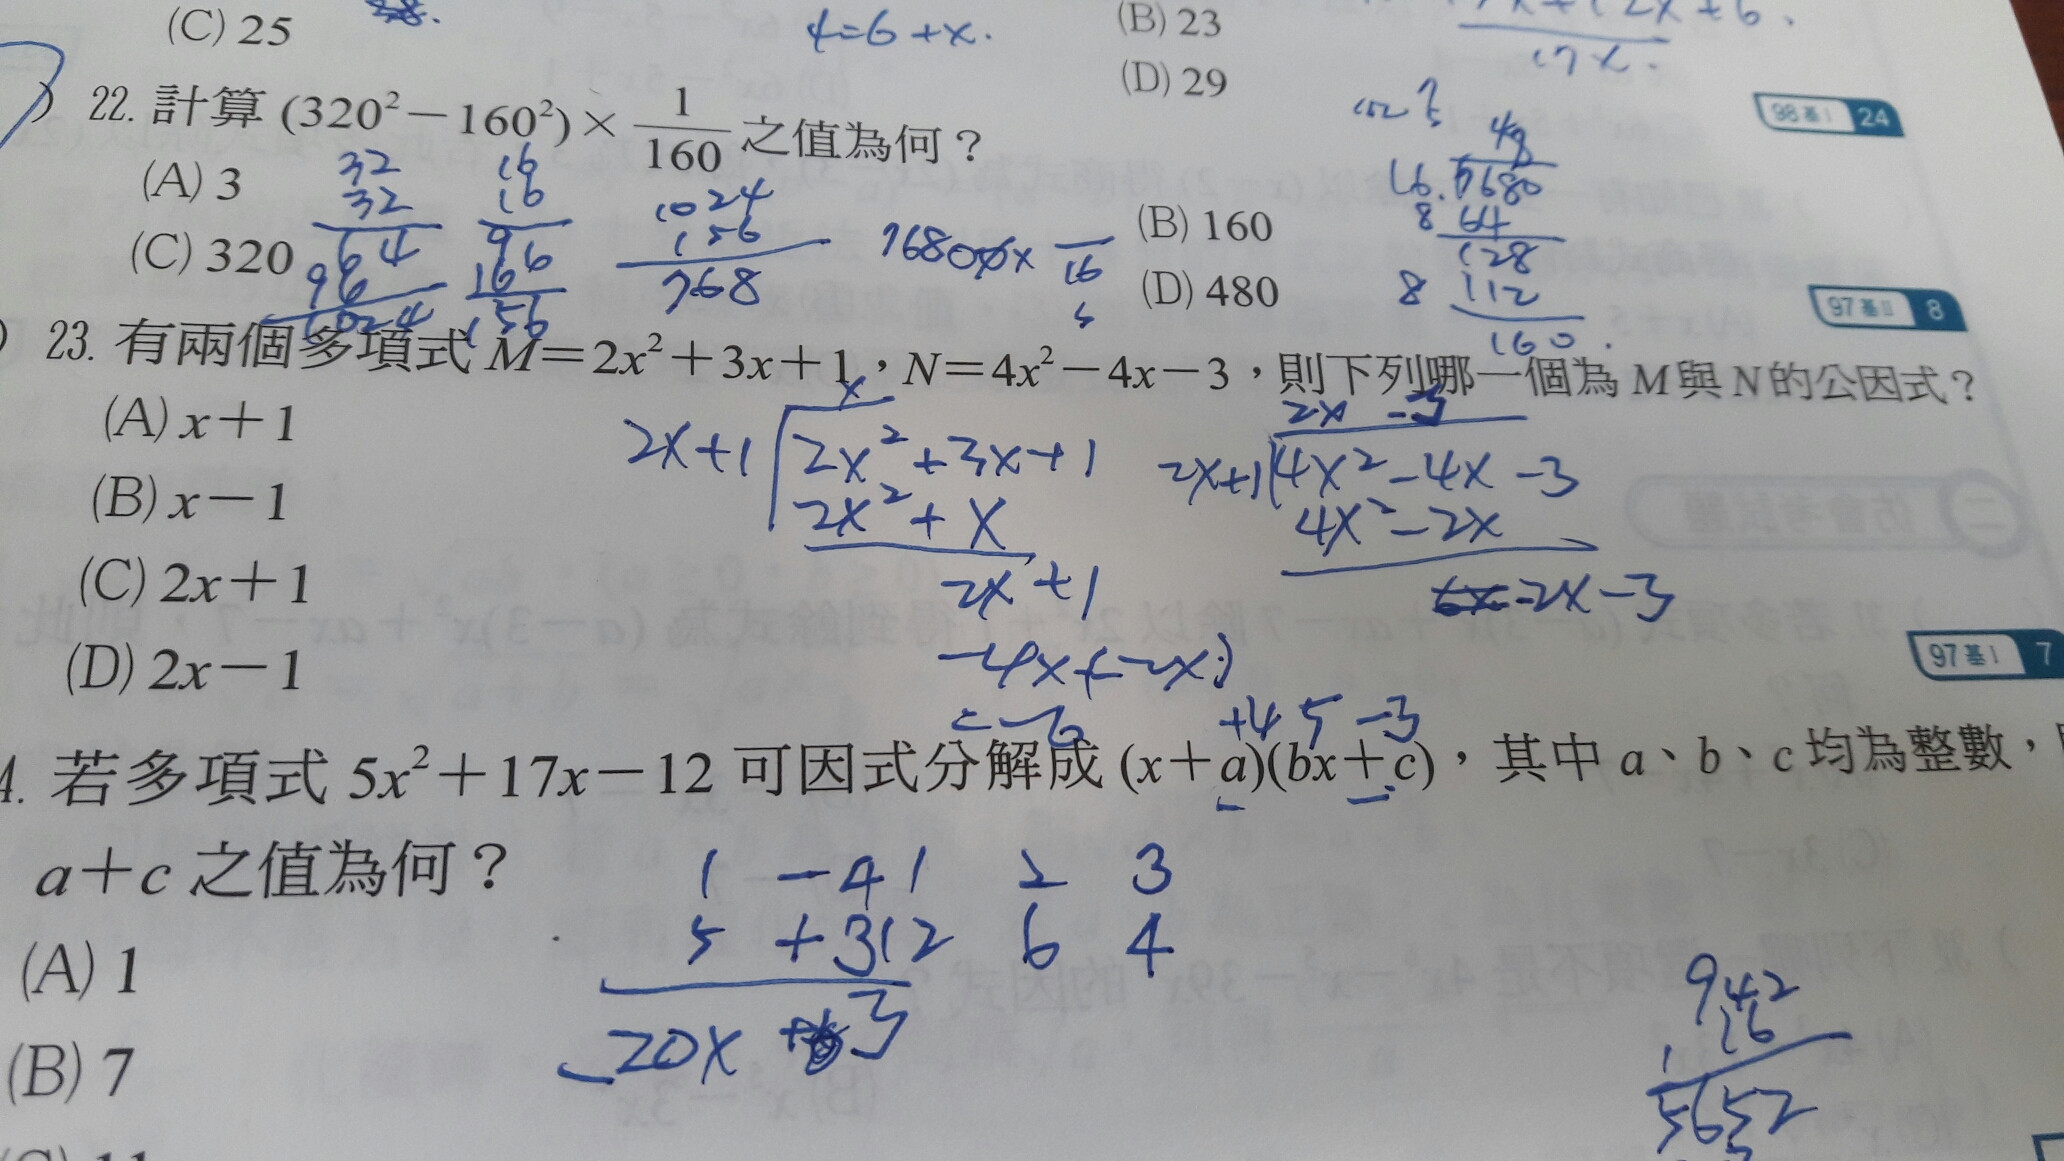 (C) 25
4=6+x.
(B) 23
17x.
(D) 29
98基I 24
22. 計算 (320²－160²)× 1/160 之值為何？
(A) 3
(B) 160
(C) 320
(D) 480
32
32
64
96
1024
16
16
96
16
156
1024
156
768
48
7680
64
128
112
160.
97基II 8
23. 有兩個多項式 M＝2x²＋3x＋1，N＝4x²－4x－3，則下列哪一個為 M與N的公因式？
(A) x＋1
(B) x－1
(C) 2x＋1
(D) 2x－1
x
2x+1
2x²+3x+1
2x²+x
2x+1
2x -3
2x+1
4x²-4x-3
4x²-2x
-2x-3
97基I 7
+4 5 -3
4. 若多項式 5x²＋17x－12 可因式分解成 (x＋a)(bx＋c)，其中 a、b、c 均為整數，
a＋c 之值為何？
1 -4 1 2 3
5 +3 12 6 4
-20x +3
(A) 1
(B) 7
942
16
5652